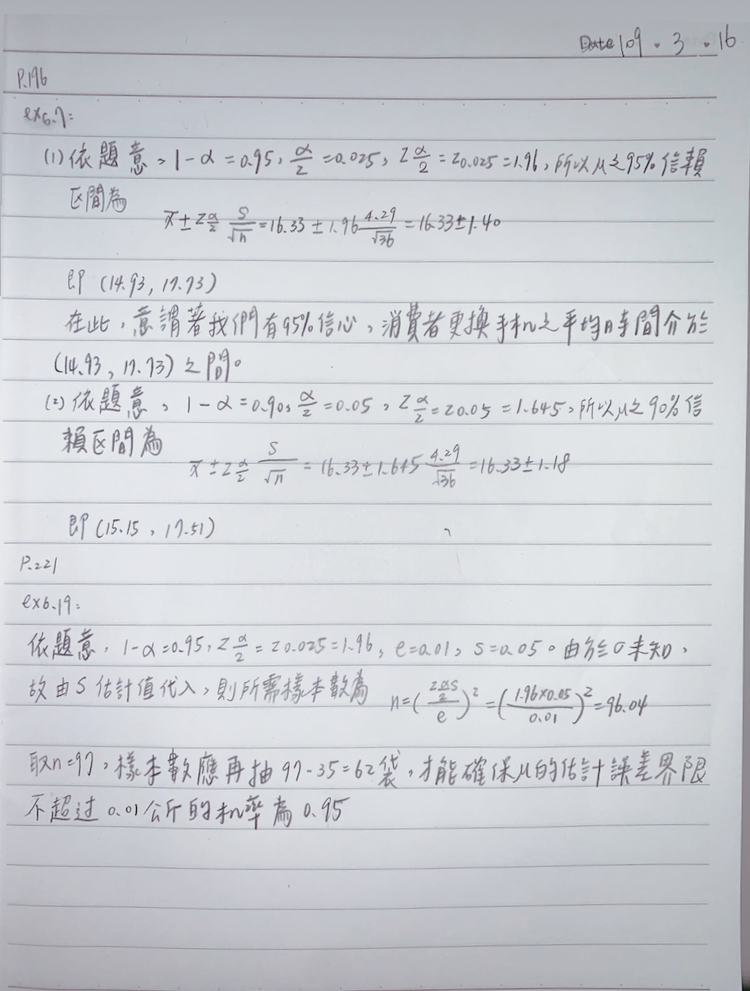 Date 109.3.16
P.196
ex6.7:
(1)依題意，1-α=0.95，α/2=0.025，Zα/2=Z0.025=1.96，所以μ之95%信賴
区間為
x̄±Zα/2 S/√n=16.33±1.96 4.29/√36=16.33±1.40
即(14.93，17.73)
在此，意謂著我們有95%信心，消費者更換手机之平均時間介於
(14.93，17.73)之間。
(2)依題意，1-α=0.90，α/2=0.05，Zα/2=Z0.05=1.645，所以μ之90%信
賴区間為
x̄±Zα/2 S/√n=16.33±1.645 4.29/√36=16.33±1.18
即(15.15，17.51)
P.221
ex6.19:
依題意，1-α=0.95，Zα/2=Z0.025=1.96，e=0.01，S=0.05。由於σ未知，
故由S估計值代入，則所需樣本數為 n=(Zα/2S/e)²=(1.96×0.05/0.01)²=96.04
取n=97，樣本數應再抽97-35=62袋，才能確保μ的估計誤差界限
不超过0.01公斤的机率為0.95